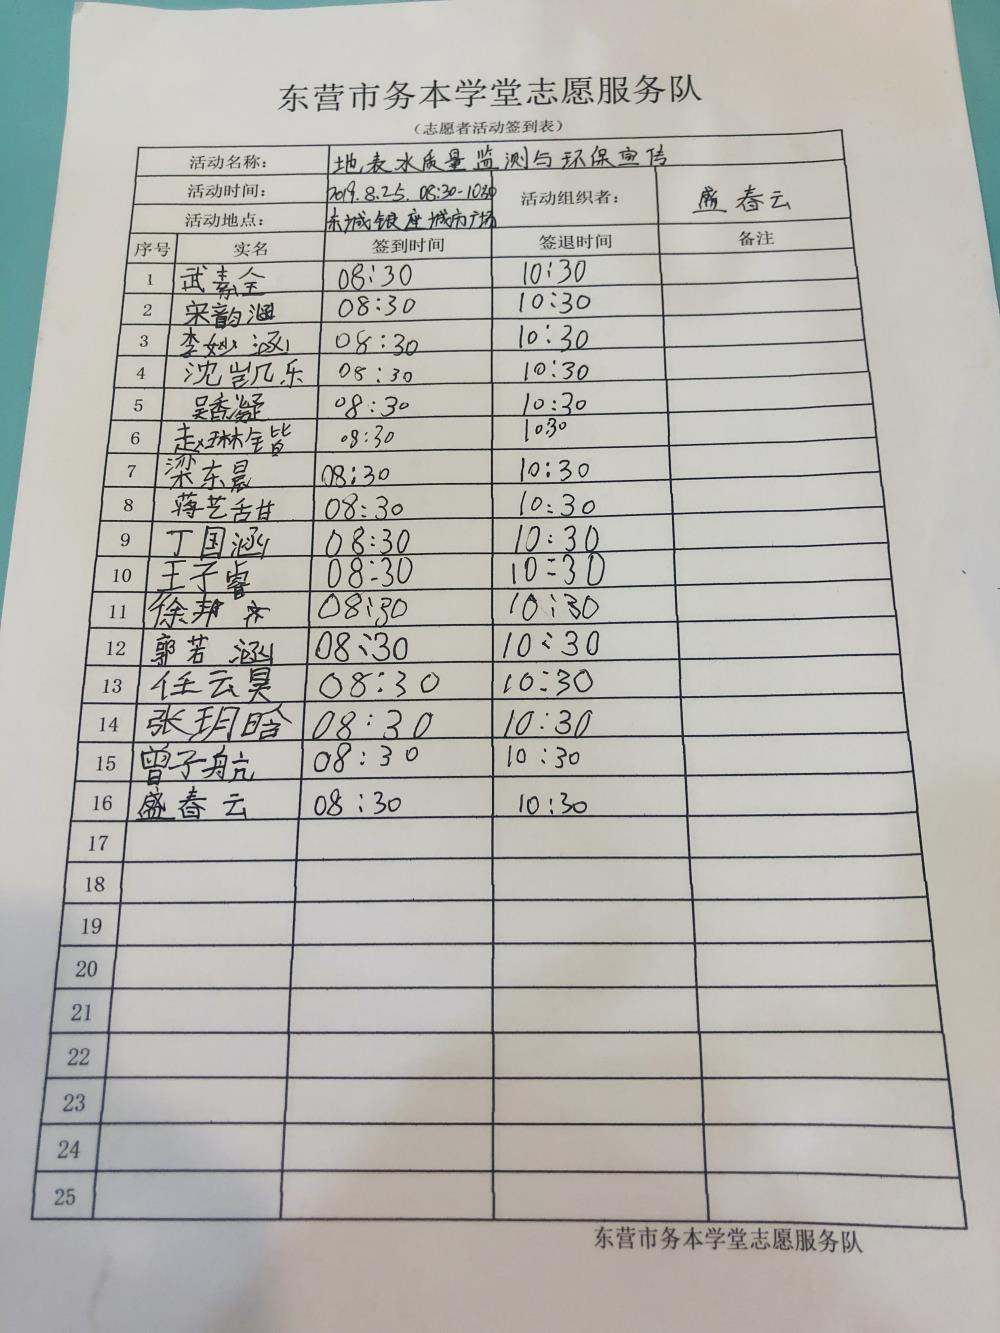 东营市务本学堂志愿服务队
（志愿者活动签到表）
活动名称： 地表水质量监测与环保宣传
活动时间： 2019.8.25. 08:30-10:30 活动组织者： 盛春云
活动地点： 东城银座城市广场
序号 实名 签到时间 签退时间 备注
1 武素全 08:30 10:30
2 宋韵涵 08:30 10:30
3 李妙涵 08:30 10:30
4 沈岂凡乐 08:30 10:30
5 吴香凝 08:30 10:30
6 赵琳锴 08:30 10:30
7 梁东晨 08:30 10:30
8 蒋艺甜 08:30 10:30
9 丁国涵 08:30 10:30
10 王子睿 08:30 10:30
11 徐邦齐 08:30 10:30
12 郭若涵 08:30 10:30
13 任云昊 08:30 10:30
14 张玥晗 08:30 10:30
15 曾子航 08:30 10:30
16 盛春云 08:30 10:30
17
18
19
20
21
22
23
24
25
东营市务本学堂志愿服务队